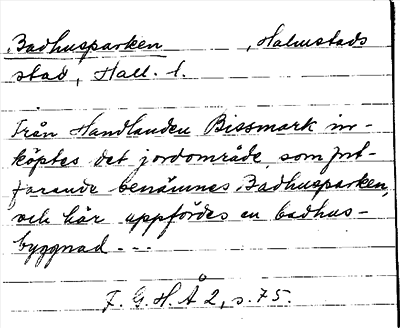 Badhusparken, Halmstads
stad, Hall. l.
Från Handlanden Bissmark in-
köptes det jordområde, som fort-
farande benämnes Badhusparken,
och här uppfördes en badhus-
byggnad - - -
F. G. H. Å 2, s. 75.